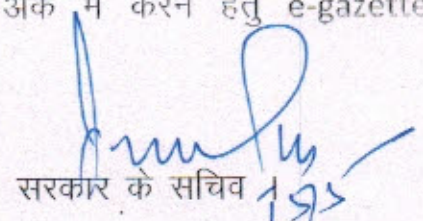 अंक में करने हेतु e-gazette
सरकार के सचिव ।